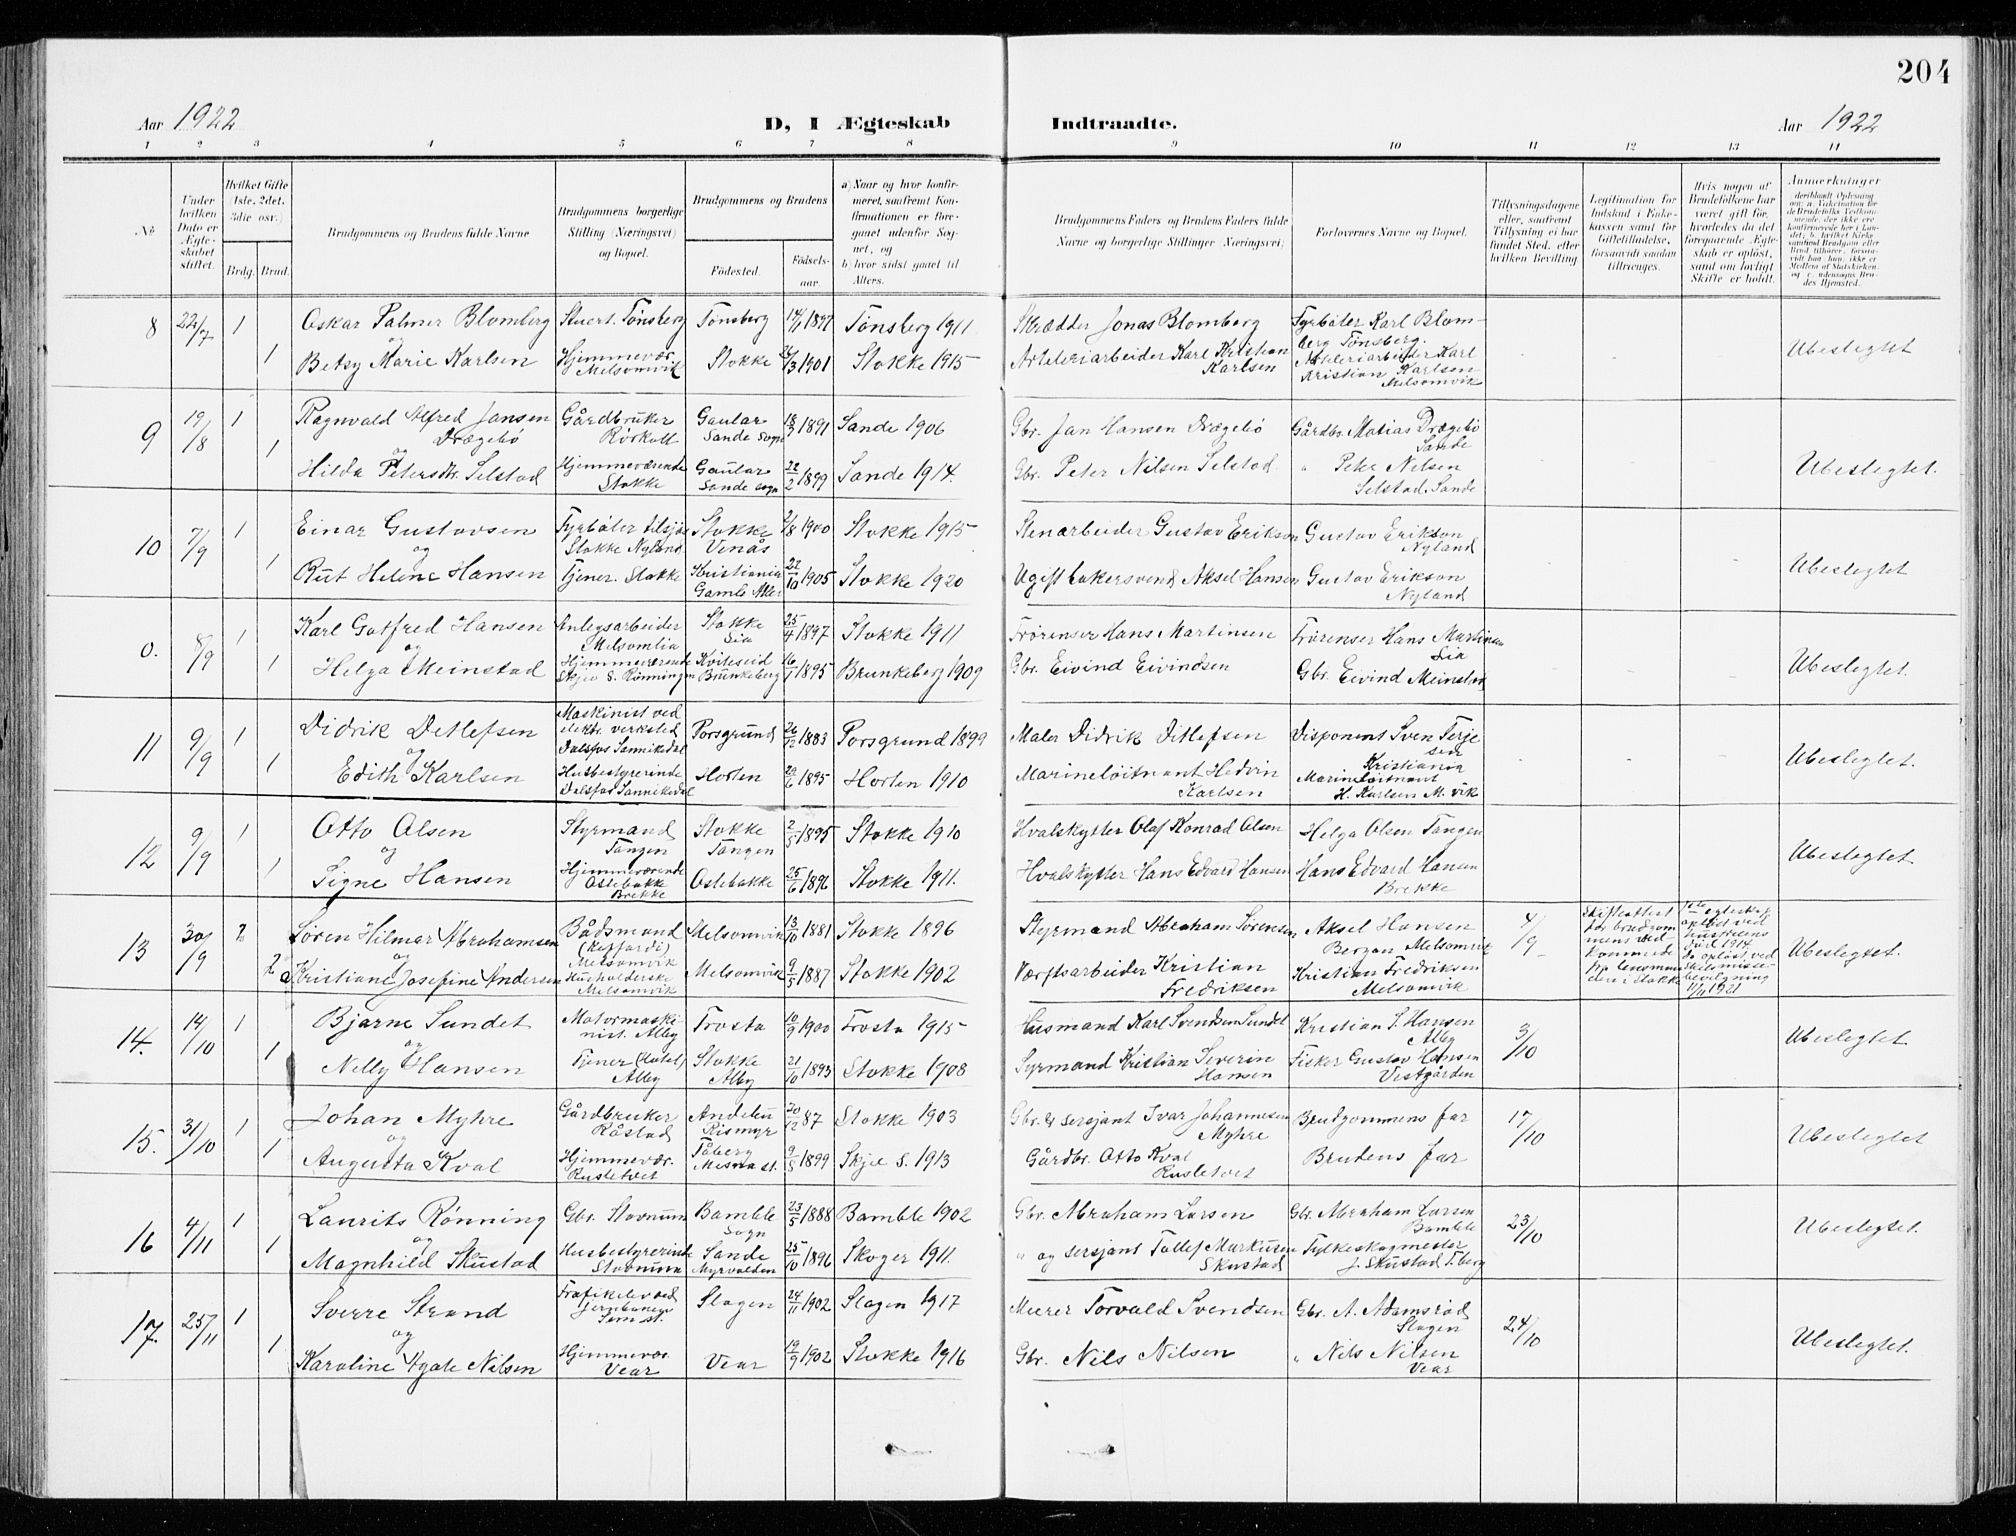 204
Aar 1922
D, I Ægteskab Indtraadte.
Aar 1922
1 2 3 4 5 6 7 8 9 10 11 12 13 14
No
Under hvilken Dato er Ægteskabet stiftet.
Hvilket Gifte (1ste, 2det, 3die osv.)
Brdg. Brud.
Brudgommens og Brudens fulde Navne
Brudgommens borgerlige Stilling (Næringsvei) og Bopæl.
Brudgommens og Brudens
Fødested. Fødselsaar.
a) Naar og hvor konfirmeret, saafremt Konfirmationen er foregaaet udenfor Sognet, og
b) hvor sidst gaaet til Alters.
Brudgommens Faders og Brudens Faders fulde Navne og borgerlige Stillinger (Næringsvei)
Forlovernes Navne og Bopæl.
Tillysningsdagene eller, saafremt Tillysning ei har fundet Sted, efter hvilken Bevilling.
Legitimation for Indskud i Enkekassen samt for Giftetilladelse, forsaavidt saadan tiltrænges.
Hvis nogen af Brudefolkene har været gift før, hvorledes da det foregaaende Ægteskab er opløst, samt om lovligt Skifte er holdt.
Anmærkninger
8 22/7 1 Oskar Palmer Blomberg Stuert. Tønsberg Tønsberg 1897 Tønsberg 1911 Skrædder Jonas Blomberg Fyrbøter Karl Blomberg Tønsberg.
og
1 Betsy Marie Karlsen Hjemmevær. Melsomvik Stokke 26/3 1901 Stokke 1915 Artileriarbeider Karl Kristian Karlsen Artileriarbeider Karl Kristian Karlsen Melsomvik Ubeslegtet
9 19/8 1 Ragnvald Alfred Jansen Drægebø Gårdbruker Rørkoll Gaular Sande Sogn 18/3 1891 Sande 1906 Gbr. Jan Hansen Drægebø Gårdbr. Matias Drægebø Sande
og
1 Hilda Petersdtr. Selstad Hjemmeværende Stokke Gaular Sande sogn 22/2 1899 Sande 1914. Gbr. Peter Nilsen Selstad " Peter Nilsen Selstad. Sande Ubeslegtet.
10 7/9 1 Einar Gustavsen Fyrbøter tilsjøs Stokke Nyland Stokke Venås 2/8 1900 Stokke 1915 Stenarbeider Gustav Erikson Gustav Erikson Nyland
og
1 Rut Helene Hansen Tjener. Stokke Kristiania Gamle Aker 22/10 1905 Stokke 1920 Ugift bakersvend Aksel Hansen Gustav Erikson Nyland Ubeslegtet
0. 8/9 1 Karl Gotfred Hansen Anlegsarbeider Melsomlia Stokke Lia 25/4 1897 Stokke 1911 Frørenser Hans Martinsen Frørenser Hans Martinsen Lia
og
1 Helga Meinstad Hjemmeværende Skjee S. Rønningen Kviteseid Brunkeberg 16/1 1895 Brunkeberg 1909 Gbr. Eivind Eivindsen Gbr. Eivind Meinstad Ubeslegtet.
11 9/9 1 Didrik Detlefsen Maskinist ved elektr. verksted Dalsfos Sannikedal Porsgrund 26/12 1883 Porsgrund 1899 Maler Didrik Ditlefsen Disponent Sven Terjesen Kristiania
og
1 Edith Karlsen Husbestyrerinde Dalsfos Sannikedal Horten 20/6 1895 Horten 1910 Marineløitnant Hedvin Karlsen Marineløitnant H. Karlsen M. vik Ubeslegtet.
12 9/9 1 Otto Olsen Styrmand Tangen Stokke Tangen 2/5 1895 Stokke 1910 Hvalskytter Olaf Konrad Olsen Helga Olsen Tangen
og
1 Signe Hansen Hjemmeværende Oslebakke Brekke Oslebakke 25/6 1896 Stokke 1911. Hvalskytter Hans Edvard Hansen Hans Edvard Hansen Brekke Ubeslegtet
13 30/9 2 Søren Hilmar Abrahamsen Bådsmand (Koffardi) Melsomvik Melsomvik 13/10 1881 Stokke 1896 Styrmand Abraham Sørensen Aksel Hansen Bergan Melsomvik 4/9 Skifteattest for brudgommens vedkommende fra lensmanden i Stokke 1ste egteskap opløst ved hustruens død 1914
og
2 Kristiane Josefine Andersen Husholderske Melsomvik Melsomvik 9/5 1887 Stokke 1902 Værftsarbeider Kristian Fredriksen Kristian Fredriksen Melsomvik do opløst ved skilsmissebevilgning 11/11 1921 Ubeslegtet.
14. 14/10 1 Bjarne Sundet Motormaskinist. Alby Frosta 10/9 1900 Frosta 1915 Husmand Karl Svendsen Sundet Kristian S. Hansen Alby 3/10
og
1 Nelly Hansen Tjener (Hotel) Alby Stokke Alby 21/10 1893 Stokke 1908 Syrmand Kristian Severin Hansen Fisker Gustav Hansen Vestgården Ubeslegtet
15. 31/10 1 Johan Myhre Gårdbruker Råstad Andebu Rismyr 20/12 87 Stokke 1903 Gbr. & sersjant Ivar Johannesen Myhre Brudgommens far 17/10
og
1 Augusta Kval Hjemmevær. Rusletvet Tåberg Mesna st. 9/8 1899 Skjee S. 1913 Gårdbr. Otto Kval Rusletvet Brudens far Ubeslegtet
16 4/11 1 Laurits Rønning Gbr. Stovnum Bamble Sogn 23/5 1888 Bamble 1902 Gbr. Abraham Larsen Gbr. Abraham Larsen Bamble 23/10
og
1 Magnhild Skustad Husbestyrerinde Stovnum Sande Myrvolden 25/10 1896 Skoger 1911. " og sersjant Tollef Markusen Skustad Fylkeskogmester J. Skustad T. berg Ubeslegtet.
17. 25/11 1 Sverre Strand Trafikelev ved jernbanen Sem st. Slagen 24/11 1902 Slagen 1917 Murer Torvald Svendsen Gbr. A. Adamsrød Slagen 24/10
og
1 Karoline Agate Nilsen Hjemmevær. Vear Vear 19/9 1902 Stokke 1916 Gbr. Nils Nilsen " Nils Nilsen Vear Ubeslegtet.